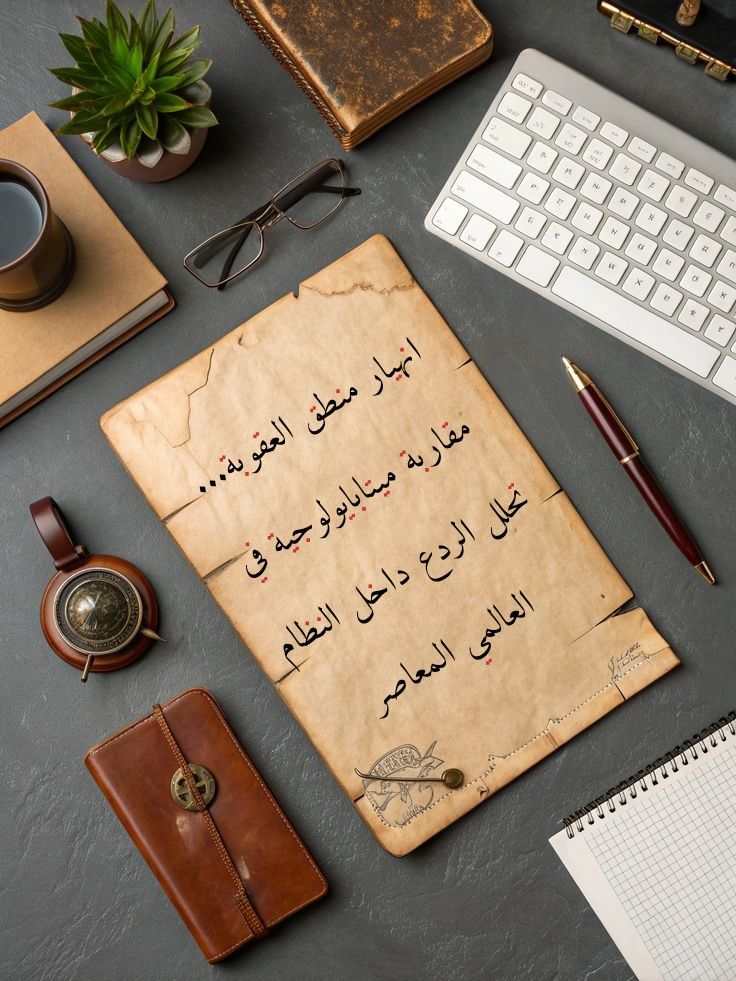 انهيار منطق العقوبة...
مقاربة ميتابايولوجية في
تحلل الردع داخل النظام
العالمي المعاصر